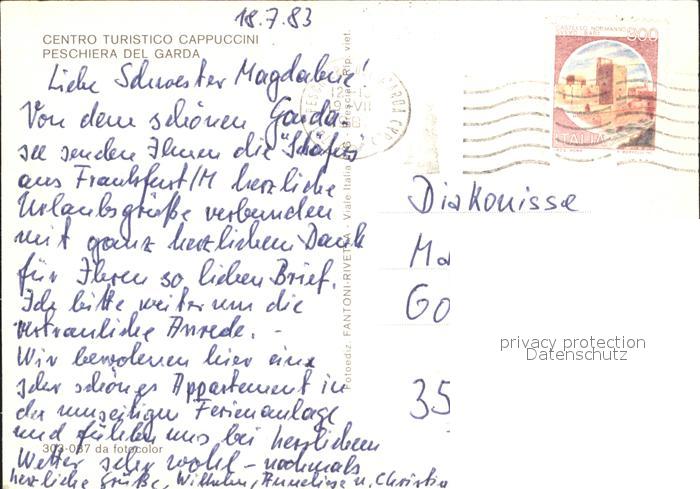 18.7.83
CENTRO TURISTICO CAPPUCCINI
PESCHIERA DEL GARDA
Liebe Schwester Magdalene!
Von dem schönen Garda-
see senden Ihnen die "Schäfers"
aus Frankfurt/M herzliche
Urlaubsgrüße verbunden
mit ganz herzlichem Dank
für Ihren so lieben Brief.
Ich bitte weiter um die
vertrauliche Anrede. -
Wir bewohnen hier ein
sehr schönes Appartement in
der umseitigen Ferienanlage
und fühlen uns bei herrlichem
Wetter sehr wohl - nochmals
herzliche Grüße, Wilhelm, Annelise u. Christin
303-087 da fotocolor
Fotoediz. FANTONI-RIVETTA - Viale Italia - Brescia - Rip. viet.
CASTELLO NORMANNO
SVEVO - BARI
300
ITALIA
Diakonisse
Ma
Go
35
privacy protection
Datenschutz